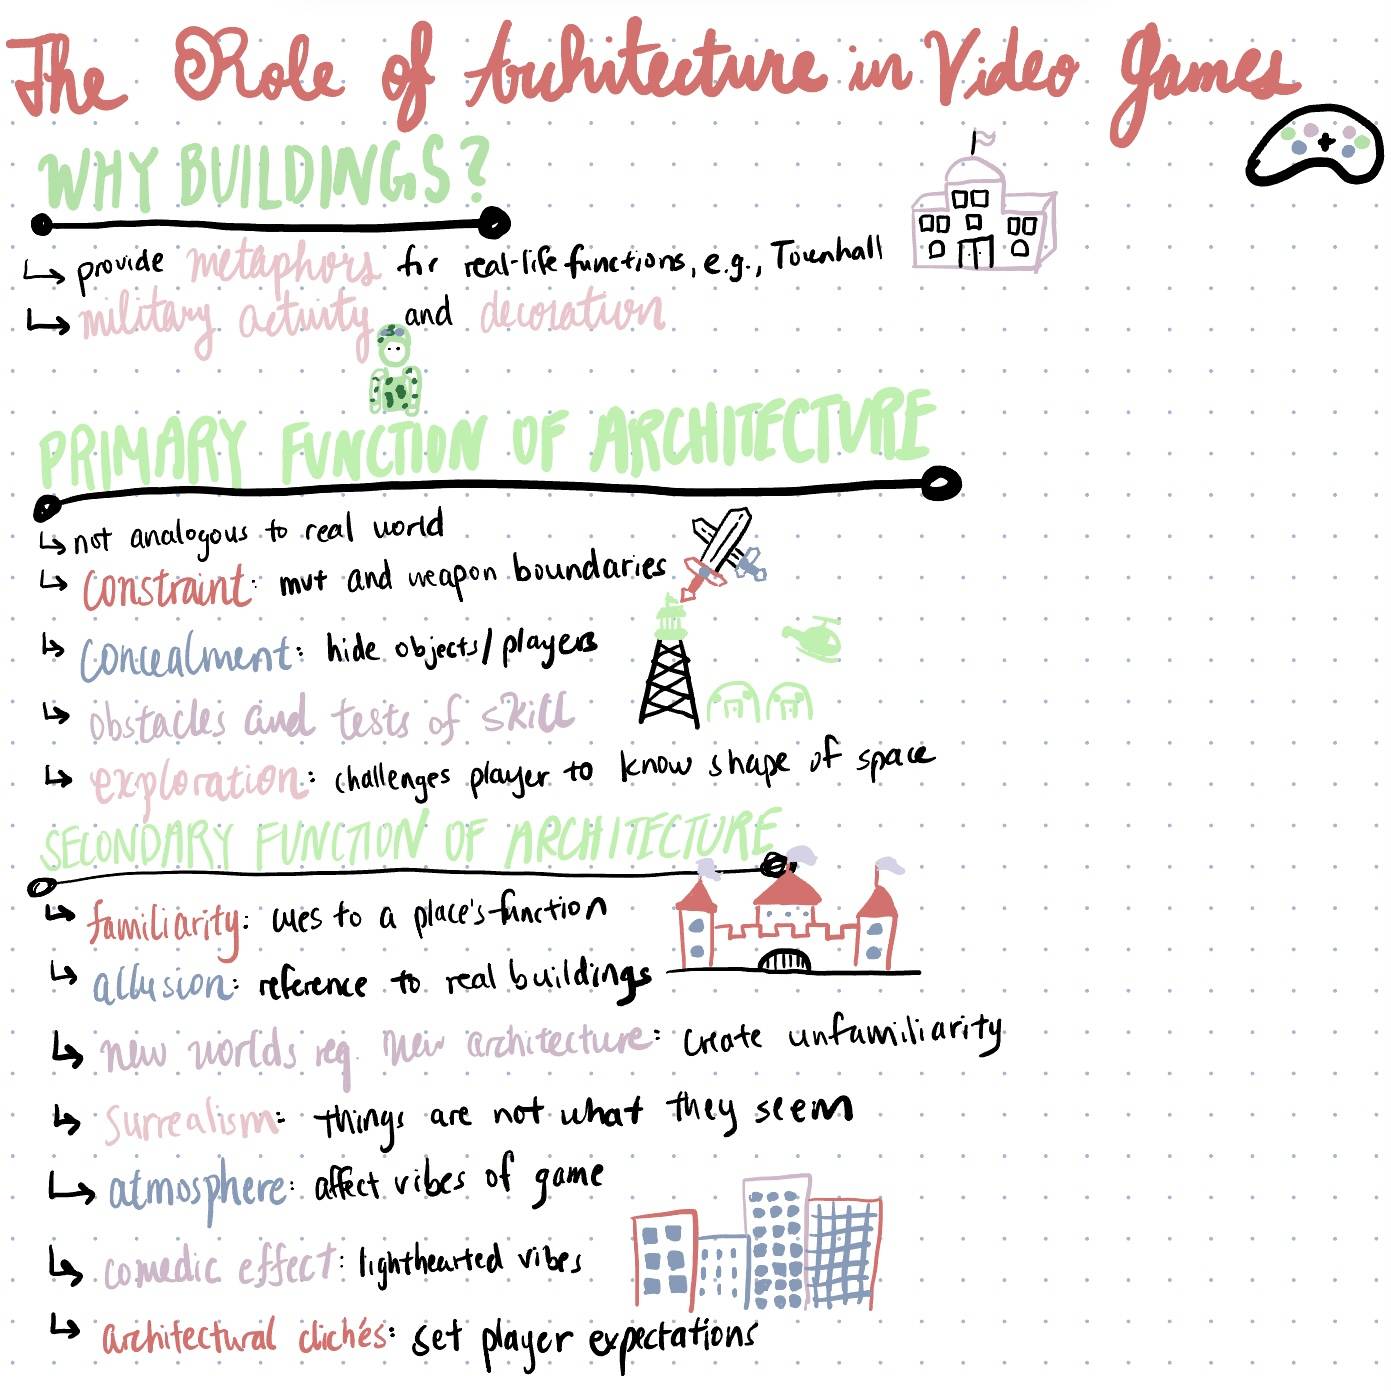 The Role of Architecture in Video Games
WHY BUILDINGS?
↳ provide metaphors for real-life functions, e.g., Townhall
↳ military activity and decoration
PRIMARY FUNCTION OF ARCHITECTURE
↳ not analogous to real world
↳ constraint: mvt and weapon boundaries
↳ concealment: hide objects/players
↳ obstacles and tests of skill
↳ exploration: challenges player to know shape of space
SECONDARY FUNCTION OF ARCHITECTURE
↳ familiarity: cues to a place's function
↳ allusion: reference to real buildings
↳ new worlds req. new architecture: create unfamiliarity
↳ surrealism: things are not what they seem
↳ atmosphere: affect vibes of game
↳ comedic effect: lighthearted vibes
↳ architectural clichés: set player expectations